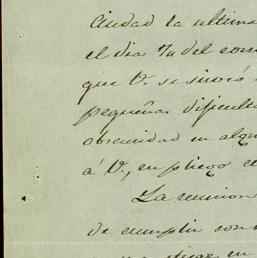 Ciudad la ultima
el dia 7/11 del corr
que V. se sirvió
pequeñas dificult
obscuridad en algu
á V., en pliego ce
La reunion
de cumplir con
en